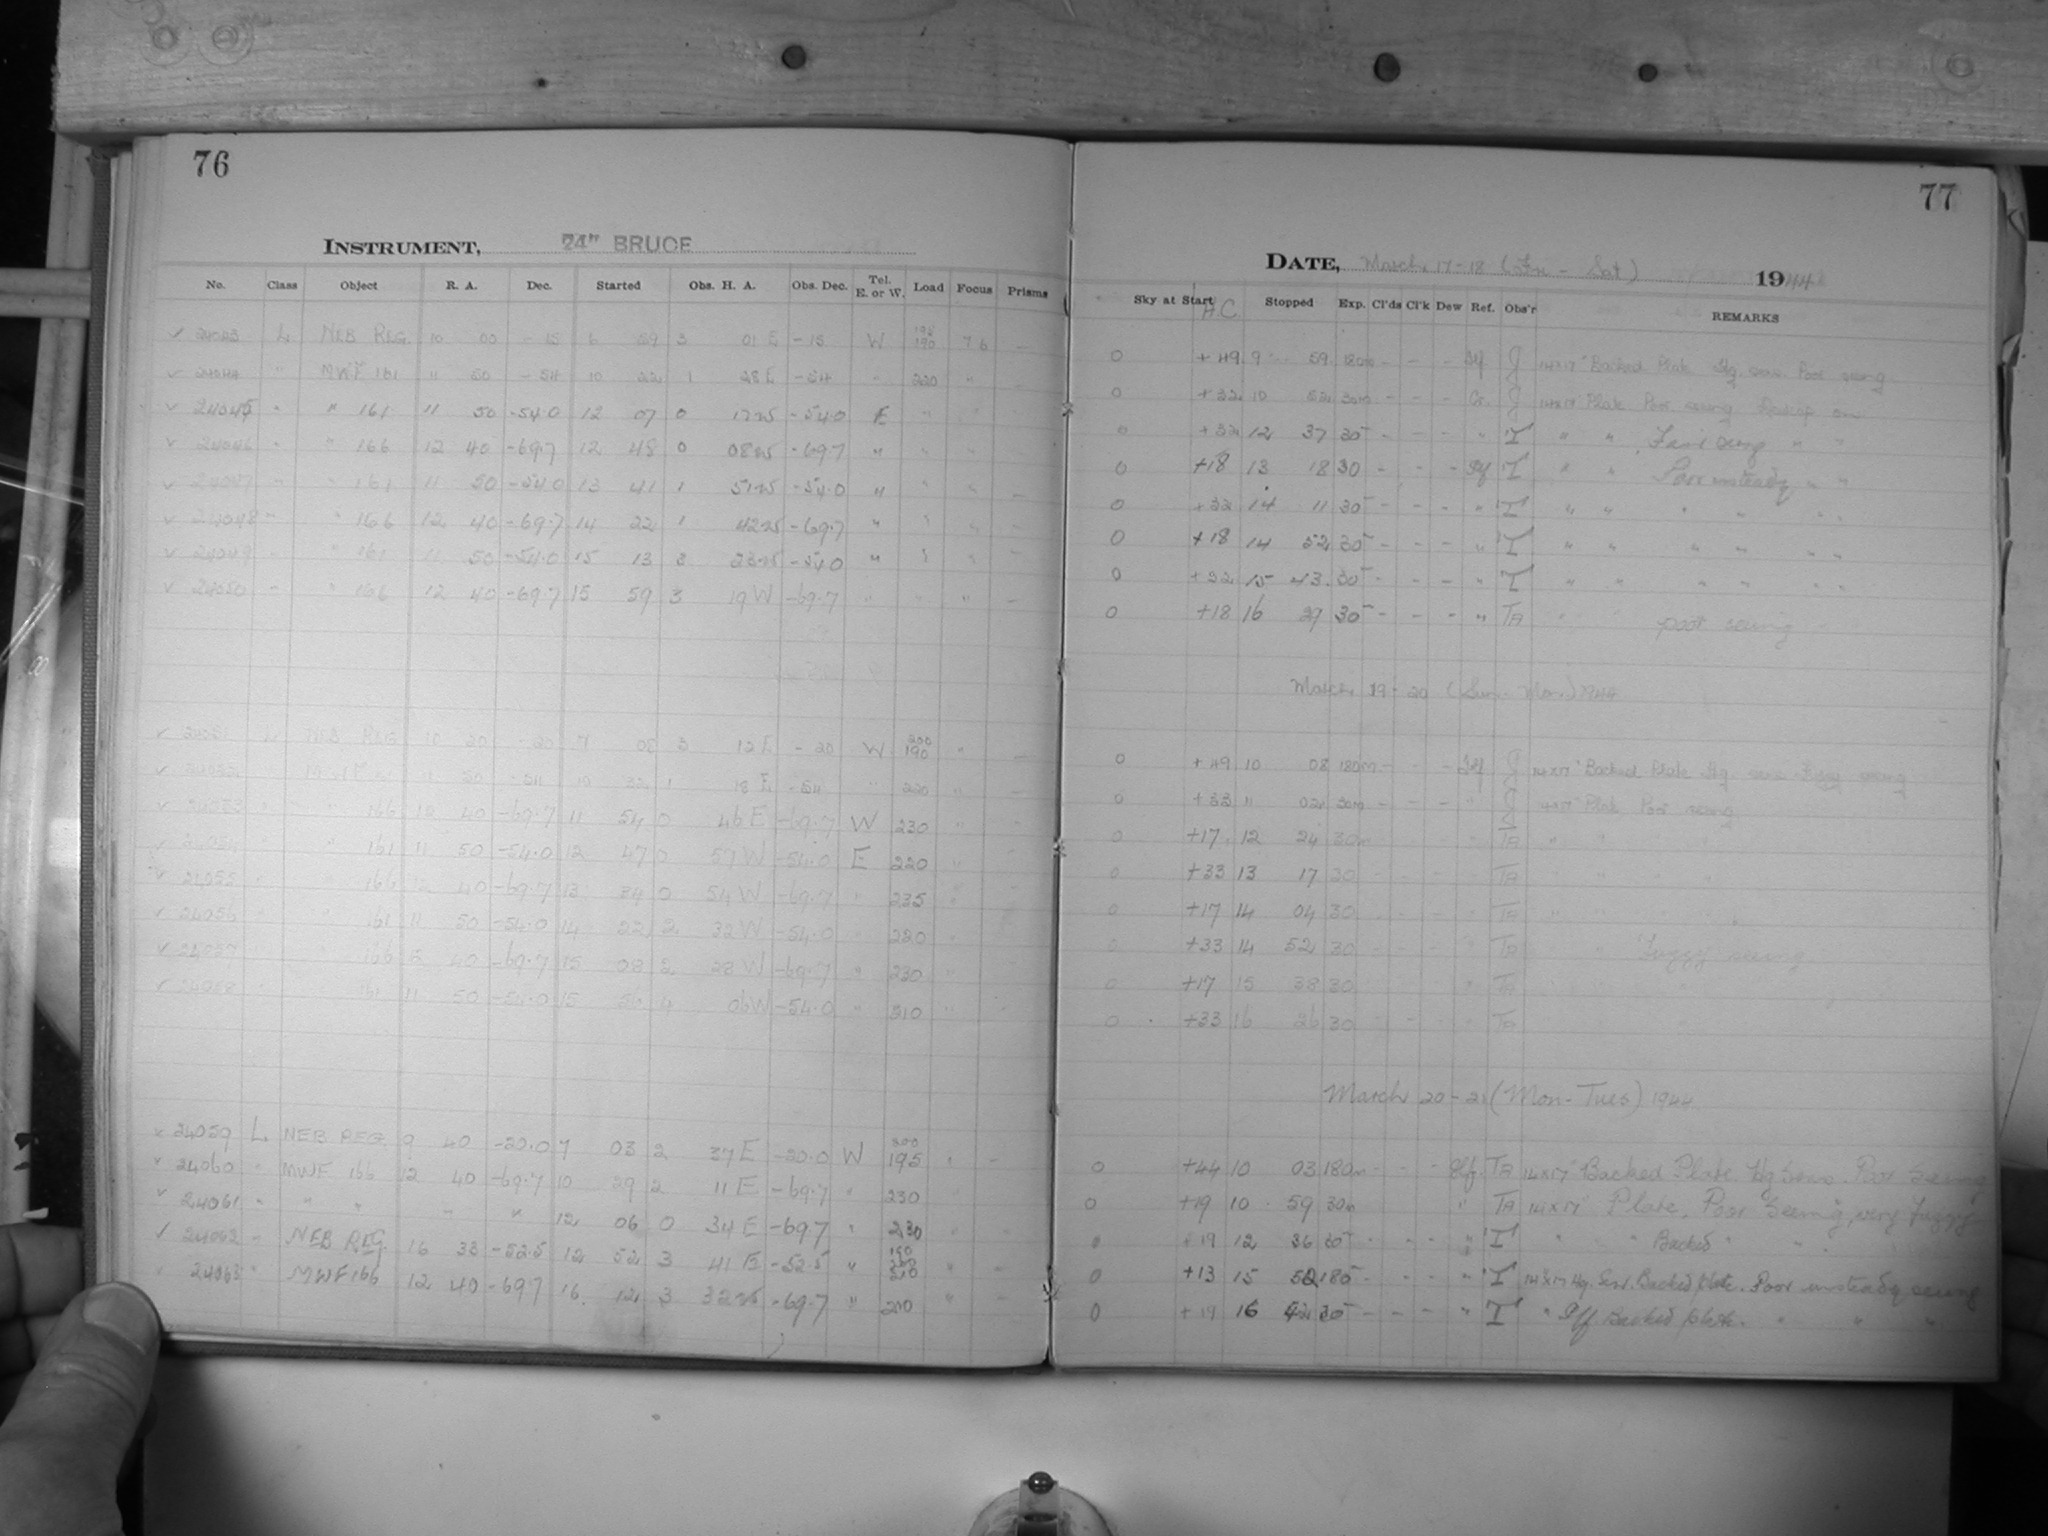 76
INSTRUMENT, 24" BRUCE
No. Class Object R. A. Dec. Started Obs. H. A. Obs. Dec. Tel. E. or W. Load Focus Prisms
24043 L NEB REG. 10 00 -15 6 59 3 01 E -15 W 190 76 -
24044 " MWF 161 " 50 -54 10 22 1 28 E -54 " 220 " -
24045 " " 161 11 50 -54.0 12 07 0 -54.0 E " "
24046 " " 166 12 40 -69.7 12 48 0 -69.7 " " "
24047 " " 161 11 50 -54.0 13 41 1 -54.0 " " " -
24048 " " 166 12 40 -69.7 14 22 1 -69.7 " " " -
24049 " " 161 11 50 -54.0 15 13 -54.0 " " " -
24050 " " 166 12 40 -69.7 15 59 3 19 W -69.7 " " " -
24051 L NEB REG 10 20 -20 7 08 3 12 E -20 W 200 190 " -
24052 MWF 50 -54 10 32 1 18 E -54 " 220 " -
24053 " " 166 12 40 -69.7 11 54 0 46 E -69.7 W 230 " "
24054 " " 161 11 50 -54.0 12 47 0 57 W -54.0 E 220 "
24055 " " 166 12 40 -69.7 13 34 0 54 W -69.7 " 235 "
24056 " " 161 11 50 -54.0 14 22 2 32 W -54.0 " 220 "
24057 " " 166 12 40 -69.7 15 08 2 28 W -69.7 " 230 "
24058 " 161 11 50 -54.0 15 56 4 06 W -54.0 " 210 "
24059 L NEB REG. 9 40 -20.0 7 03 2 37 E -20.0 W 200 195 " -
24060 " MWF 166 12 40 -69.7 10 29 2 11 E -69.7 " 230 "
24061 " " " " " 12 06 0 34 E -69.7 " 230 "
24062 " NEB REG. 16 33 -52.5 12 52 3 41 E -52.5 " " -
24063 " MWF 166 12 40 -69.7 16 12 3 -69.7 " 210 " -
77
DATE, March 17-18 (Fri - Sat) 1944
Sky at Start H.C. Stopped Exp. Cl'ds Cl'k Dew Ref. Obs'r REMARKS
0 +49 9 59 180m - - - J 14x17" Backed Plate Hg sens. Poor seeing
0 +32 10 52 30m - - - J 14x17" Plate Poor seeing
0 +32 12 37 30 - - - " T " " Fair seeing " "
0 +18 13 18 30 - - - T " " Poor unsteady " "
0 +32 14 11 30 - - - " T " " " " " "
0 +18 14 52 30 - - - " T " " " " " "
0 +32 15 43 30 - - - " T " " " " " "
0 +18 16 30 - - - " TA " " poor seeing
March 19-20 (Sun - Mon.) 1944
0 +49 10 08 180m - - - J 14x17" Backed Plate Hg. sens. Fuzzy seeing
0 +33 11 02 30m - - - " J 14x17" Plate Poor seeing
0 +17 12 24 30m - - - " TA " " "
0 +33 13 17 30 - - - TA " " "
0 +17 14 04 30 - - - TA " " "
0 +33 14 52 30 - - - " TA " " Fuzzy seeing
0 +17 15 38 30 " TA
0 +33 16 26 30 - - - " TA
March 20-21 (Mon-Tues) 1944
0 +44 10 03 180m - - - TA 14x17" Backed Plate Hg Sens. Poor Seeing
0 +19 10 59 30m " TA 14x17" Plate. Poor Seeing, very Fuzzy
0 +19 12 36 30 - - - " T " " " Backed " " "
0 +13 15 52 180 - - - " T 14x17 Hg. Sens. Backed plate. Poor unsteady seeing
0 +19 16 42 30 - - - " T " Backed plate. " " "